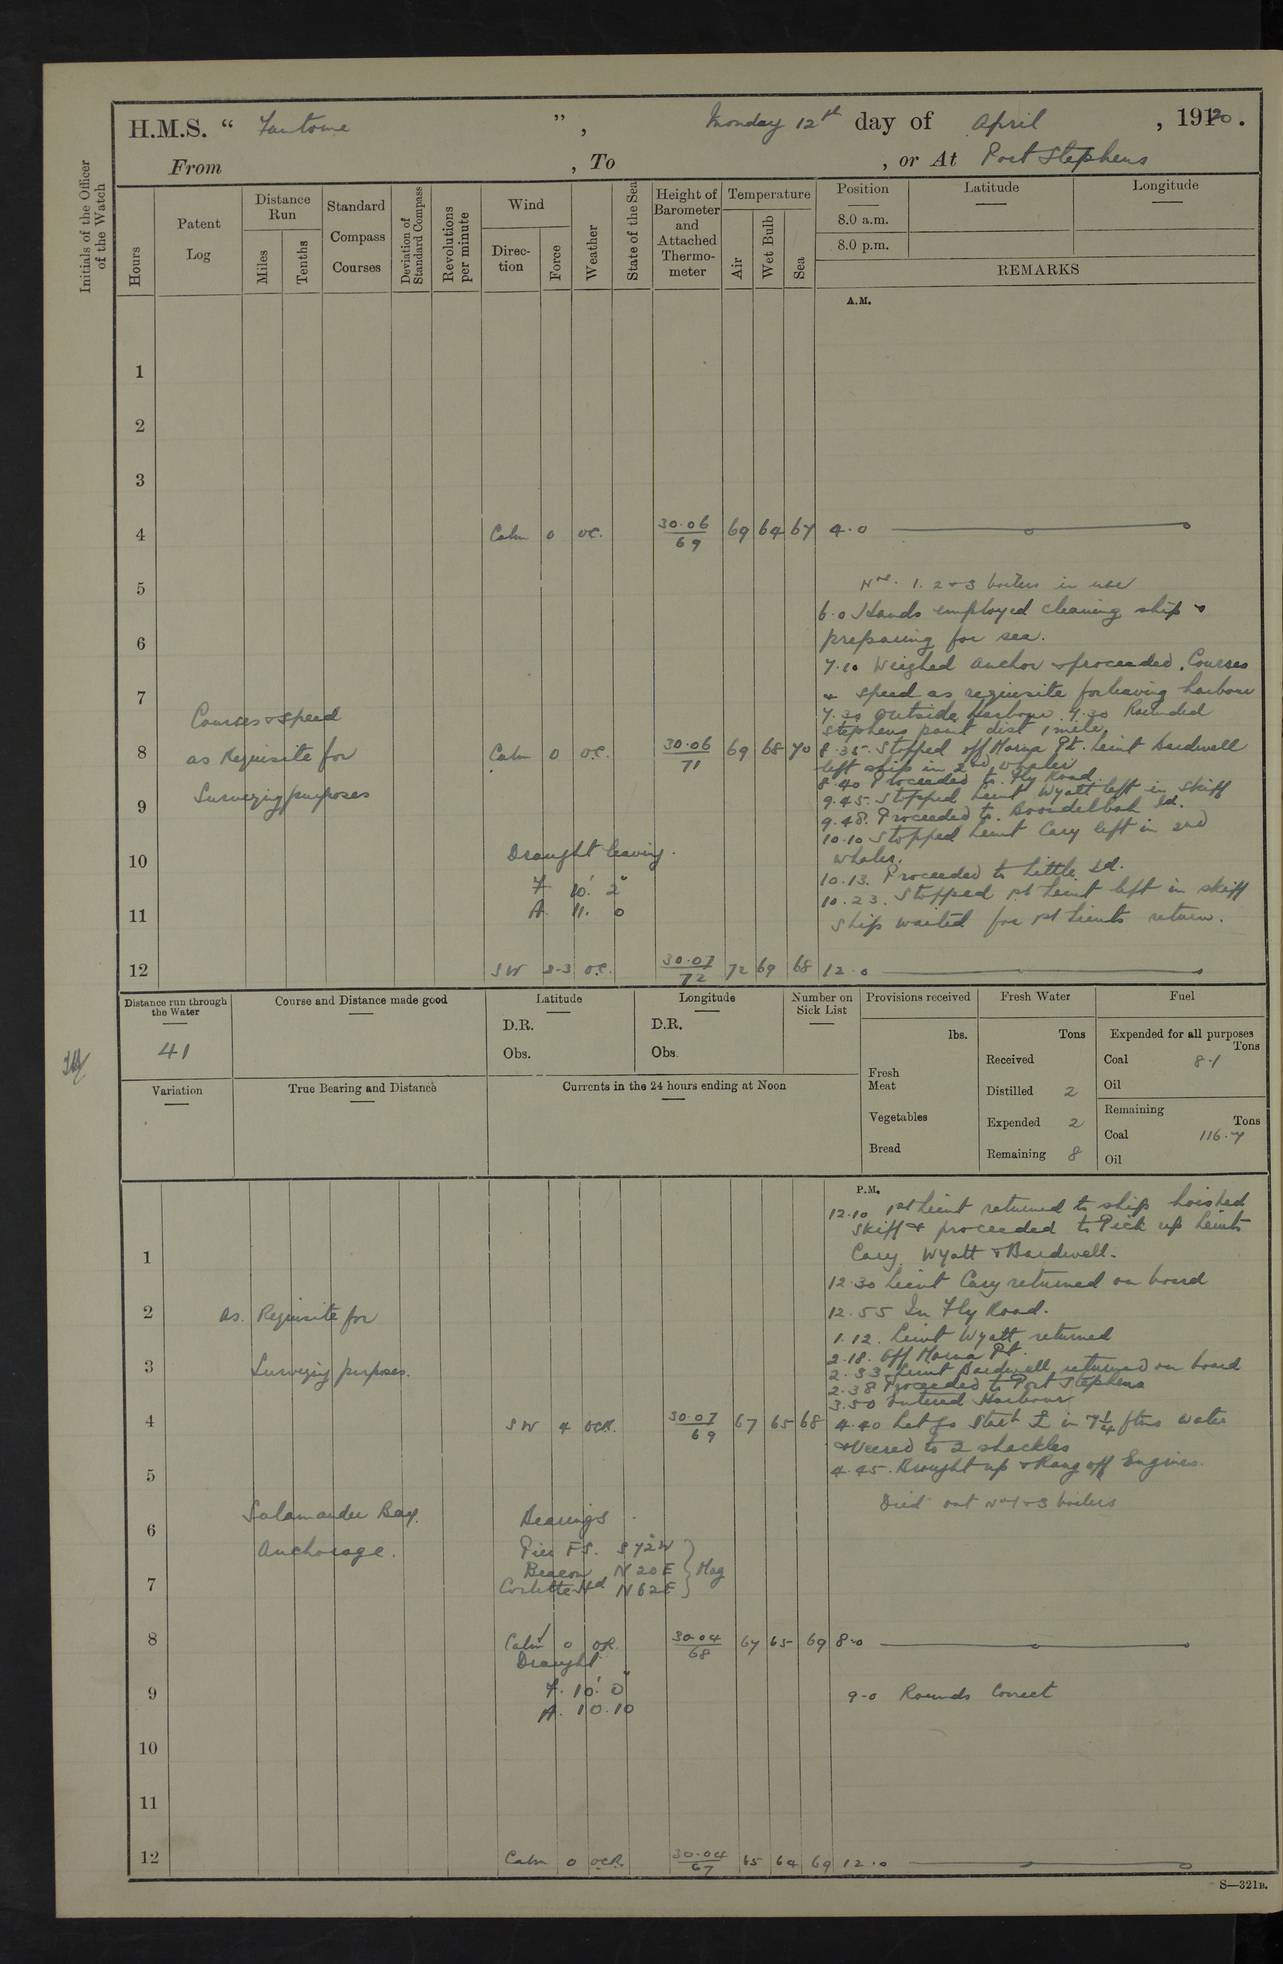 H.M.S. " Fantome ", Monday 12th day of April, 1920.
From , To , or At Port Stephens
Initials of the Officer of the Watch
Hours
Patent Log
Distance Run
Miles
Tenths
Standard Compass Courses
Deviation of Standard Compass
Revolutions per minute
Wind
Direction
Force
Weather
State of the Sea
Height of Barometer and Attached Thermometer
Temperature
Air
Wet Bulb
Sea
Position
8.0 a.m.
8.0 p.m.
Latitude
Longitude
REMARKS
A.M.
1
2
3
4 Calm 0 oc. 30.06/69 69 64 67 4.0
5
Nos. 1. 2 & 3 boilers in use
6.0 Hands employed cleaning ship &
6
preparing for sea.
7.10 Weighed anchor & proceeded. Courses
7
& speed as requisite for leaving harbour
Courses & speed
7.30 Outside Harbour. 7.30 Rounded
Stephens point dist 1 mile
8 as Requisite for Calm 0 o.c. 30.06/71 69 68 70 8.35. Stopped off Morna Pt. Lieut Bardwell
left ship in 2nd whaler
8.40 Proceeded to Fly Road.
9 Surveying purposes
9.45. Stopped Lieut Wyatt left in skiff
9.48. Proceeded to Boondelbah Id.
10.10 Stopped Lieut Cary left in 2nd
10 Draught leaving.
whaler.
10.13. Proceeded to Little Id.
F 10' 2"
10.23. Stopped 1st Lieut left in skiff
11 A. 11. 0
Ship waited for 1st Lieuts return.
12 SW 2-3 o.c. 30.07/72 72 69 68 12.0
Distance run through the Water
41
Course and Distance made good
Latitude
D.R.
Obs.
Longitude
D.R.
Obs.
Number on Sick List
Provisions received
lbs.
Fresh Meat
Vegetables
Bread
Fresh Water
Tons
Received
Distilled 2
Expended 2
Remaining 8
Fuel
Expended for all purposes
Tons
Coal 8.1
Oil
Remaining
Tons
Coal 116.7
Oil
Variation
True Bearing and Distance
Currents in the 24 hours ending at Noon
P.M.
12.10 1st Lieut returned to ship hoisted
skiff & proceeded to Pick up Lieuts
1
Cary Wyatt & Bardwell.
12.30 Lieut Cary returned on board
2 As. Requisite for 12.55 In Fly Road.
1.12. Lieut Wyatt returned
2.18. Off Morna Pt.
3 Surveying purposes.
2.33 Lieut Bardwell returned on board
2.38 Proceeded to Port Stephens
3.50 Entered Harbour
4 SW 4 ocR. 30.07/69 67 65 68 4.40 Let go Stbd ⚓ in 7¼ fms water
& Veered to 2 shackles
5
4.45. Brought up & Rang off Engines.
Died out No 1 & 3 boilers
Salamander Bay.
6
Anchorage.
Bearings
Pier FS. S 72° W
Beacon N 20 E } Mag
7
Corlette Hd N 62 E
8 Calm 0 oR. 30.04/68 67 65 69 8.0
Draught
F. 10' 0"
9
A. 10.10
9.0 Rounds Correct
10
11
12 Calm 0 ocR. 30.04/67 65 64 69 12.0
S—321B.